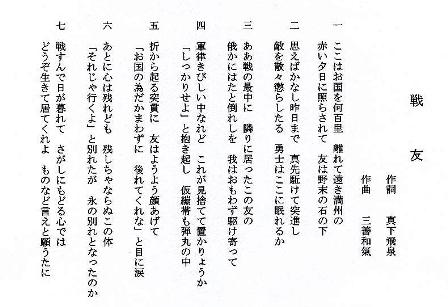 戦友
作詞 真下飛泉
作曲 三善和気
一 ここはお国を何百里 離れて遠き満州の
赤い夕日に照らされて 友は野末の石の下
二 思えばかなし昨日まで 真先駆けて突進し
敵を散々懲らしたる 勇士はここに眠れるか
三 ああ戦の最中に 隣りに居ったこの友の
俄かにはたと倒れしを 我はおもわず駆け寄って
四 軍律きびしい中なれど これが見捨てて置かりょうか
「しっかりせよ」と抱き起し 仮繃帯も弾丸の中
五 折から起る突貫に 友はようよう顔あげて
「お国の為だかまわずに 後れてくれな」と目に涙
六 あとに心は残れども 残しちゃならぬこの体
「それじゃ行くよ」と別れたが 永の別れとなったのか
七 戦すんで日が暮れて さがしにもどる心では
どうぞ生きて居てくれよ ものなど言えと願うたに